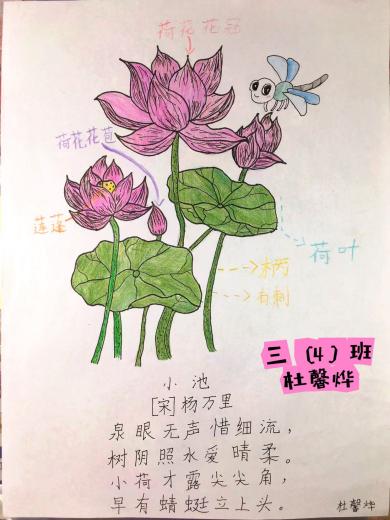 荷花花冠
荷花花苞
莲蓬
荷叶
有刺
三（4）班
杜馨烨
小池
[宋]杨万里
泉眼无声惜细流，
树阴照水爱晴柔。
小荷才露尖尖角，
早有蜻蜓立上头。
杜馨烨